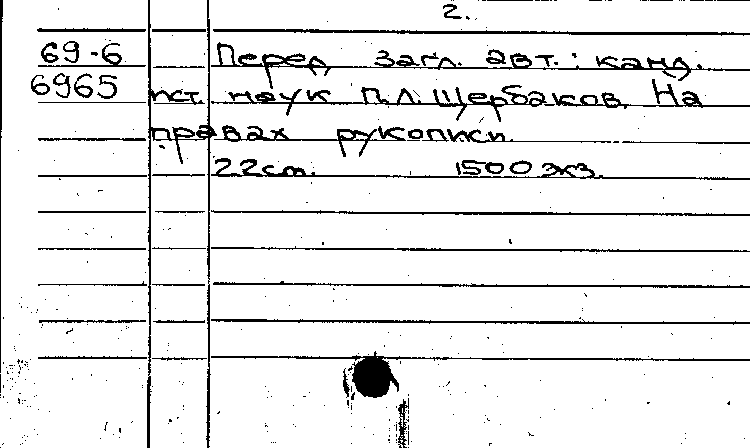 2.
69-6 Перед загл. авт.: канд.
6965 ист. наук П.Л. Щербаков. На
правах рукописи.
22 см. 1500 экз.